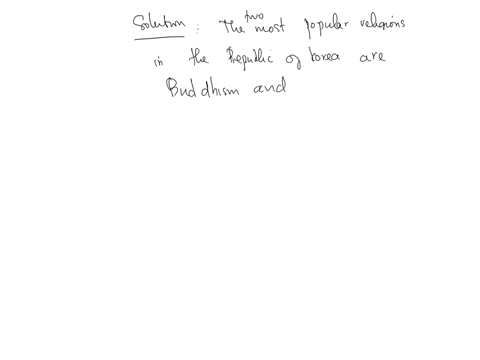 Solution : The two most popular religions
in the Republic of Korea are
Buddhism and